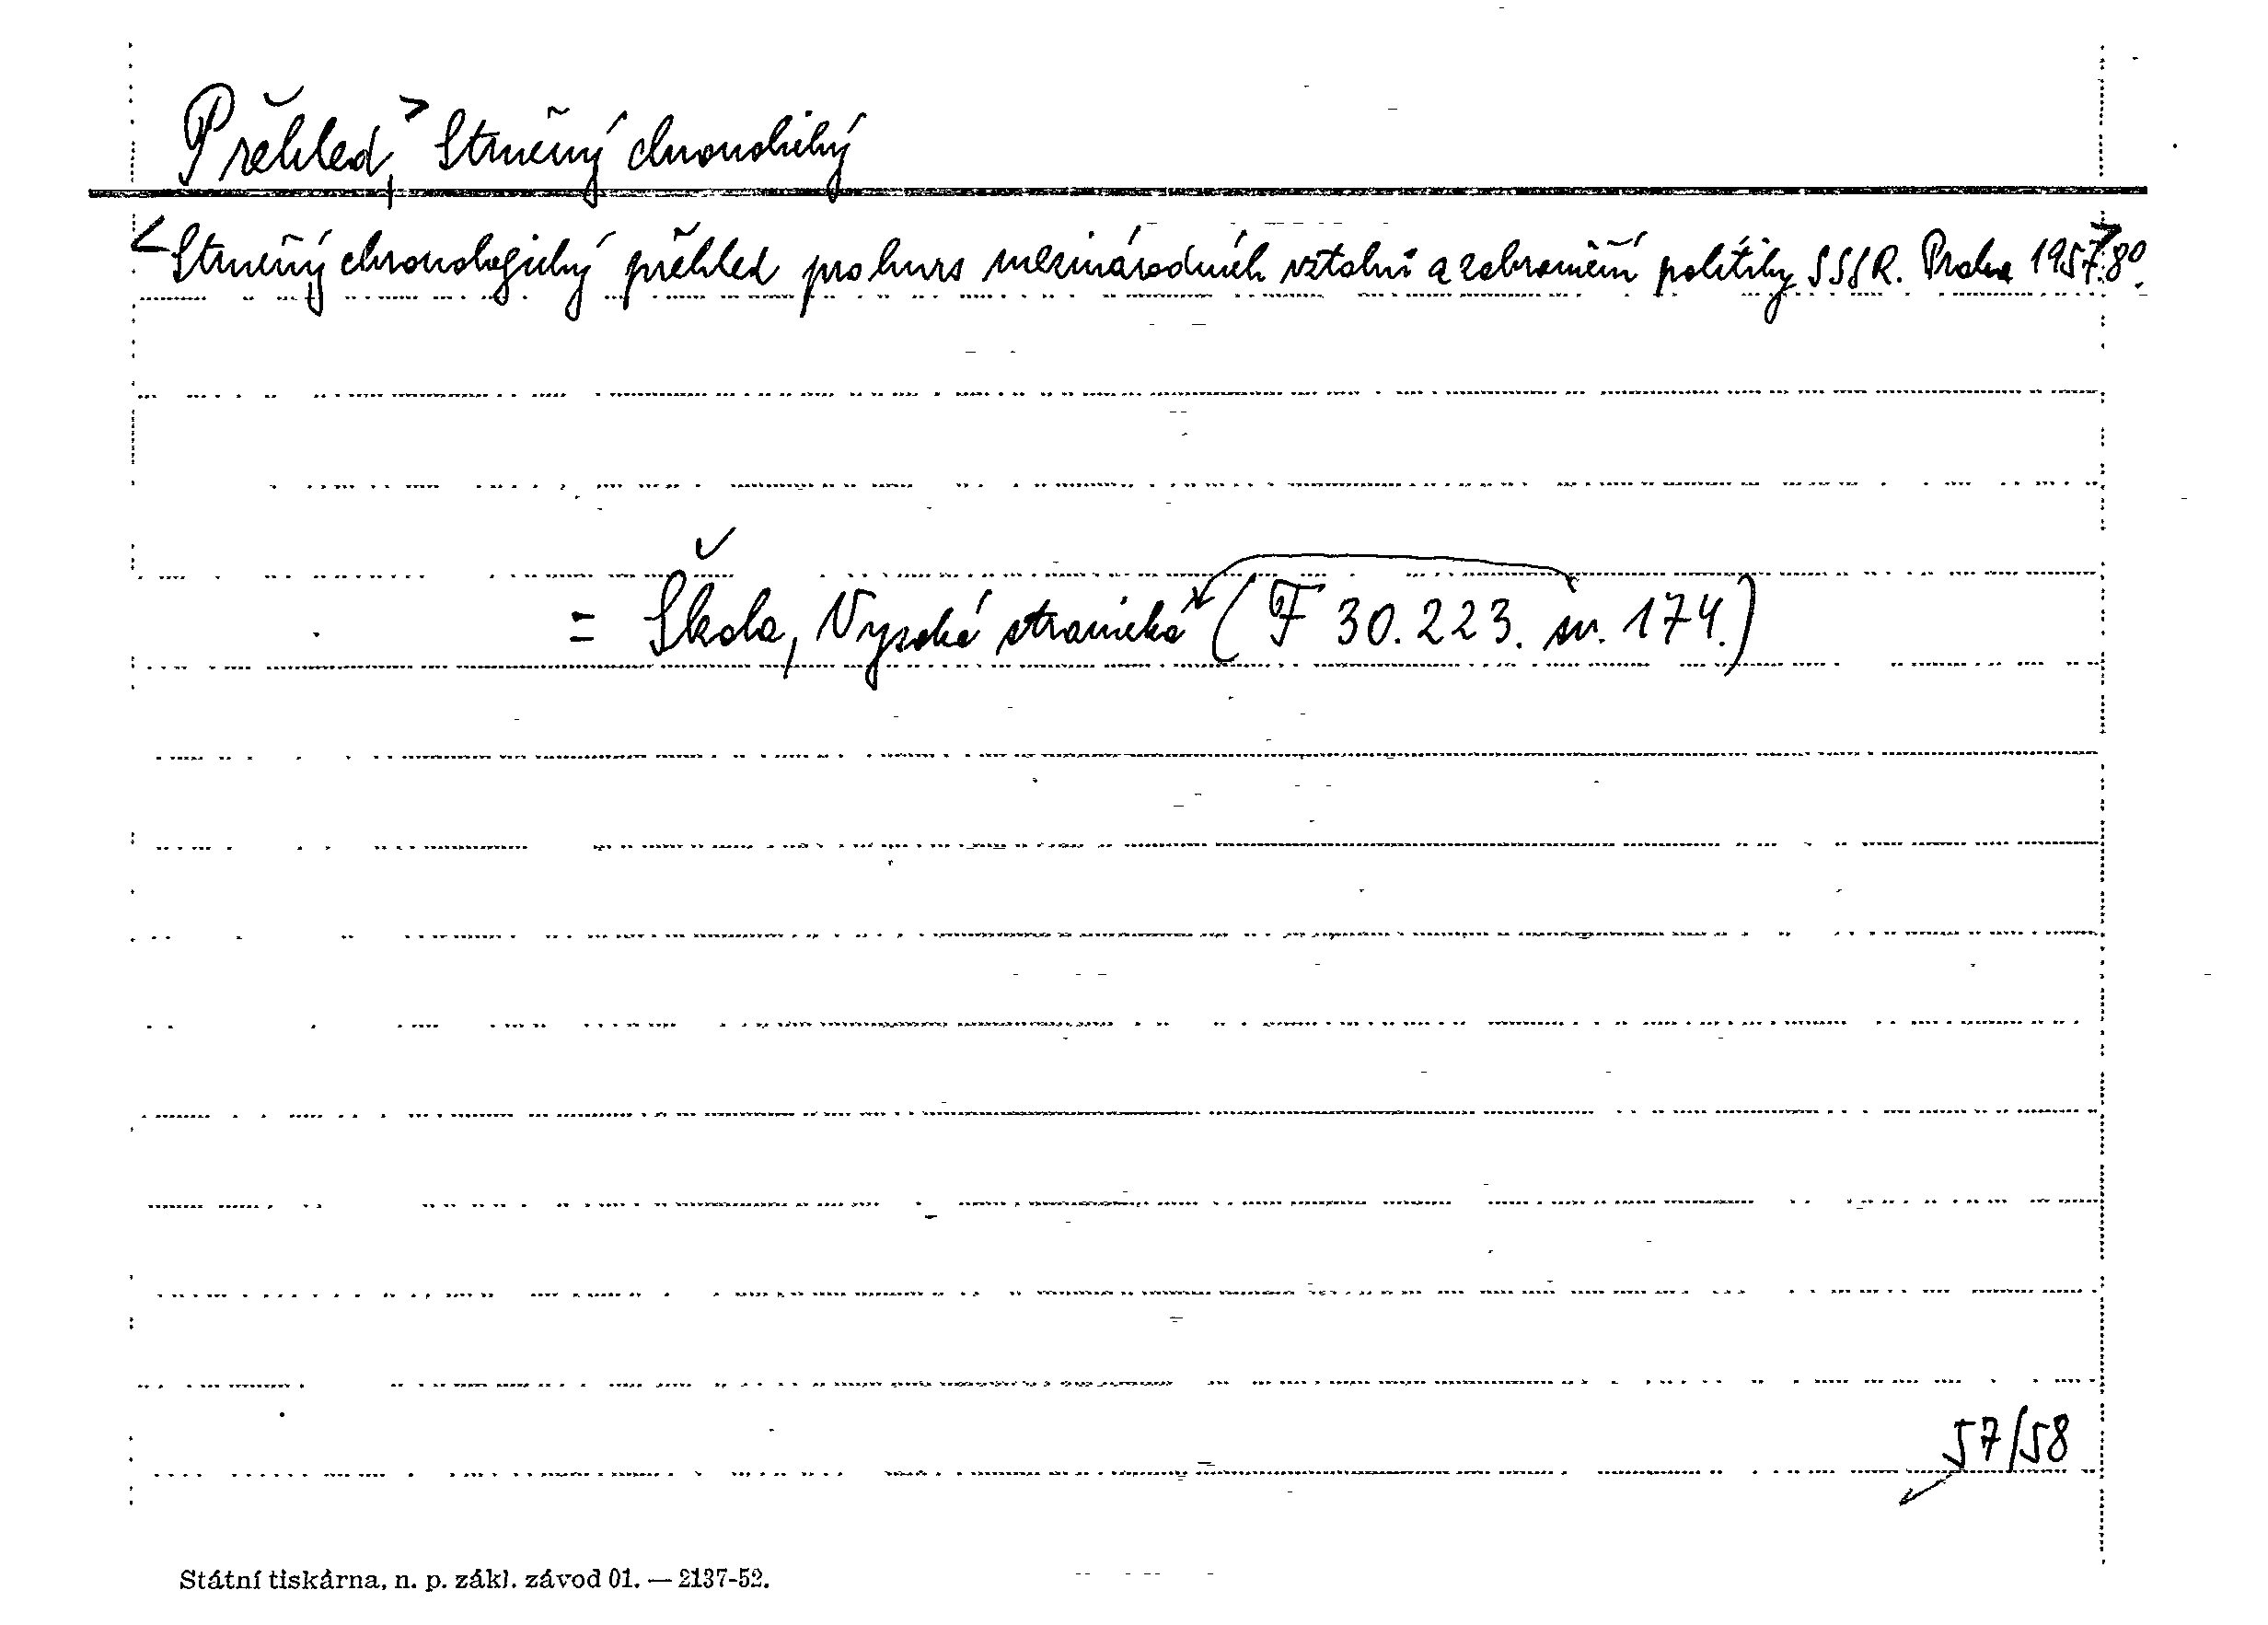 Přehled,> Stručný chronolický
<Stručný chronologický přehled pro kurs mezinárodních vztahů a zahraniční politiky SSSR. Praha 1957.> 8°.
= Škola, Vysoká stranická (F 30.223. sv. 174.)
57/58
Státní tiskárna, n. p. zákl. závod 01. — 2137-52.